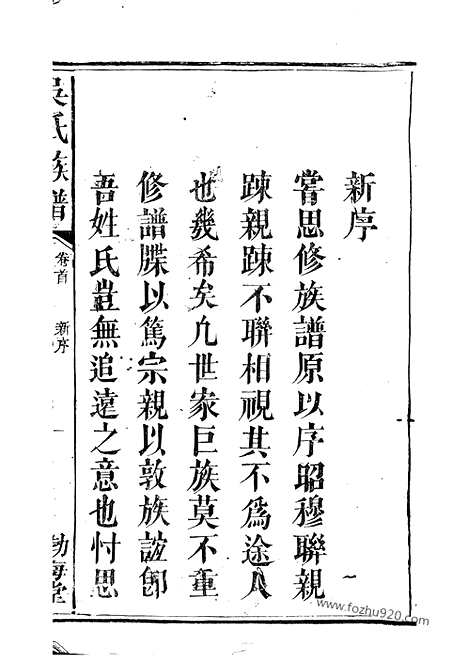 新序
嘗思修族譜原以序昭穆聯親
踈親踈不聯相視其不為途人
也幾希矣凢世家巨族莫不重
修譜牒以篤宗親以敦族誼卽
吾姓氏豈無追遠之意也忖思
吳氏族譜
卷首
新序
一
渤海堂
www.fozhu920.com